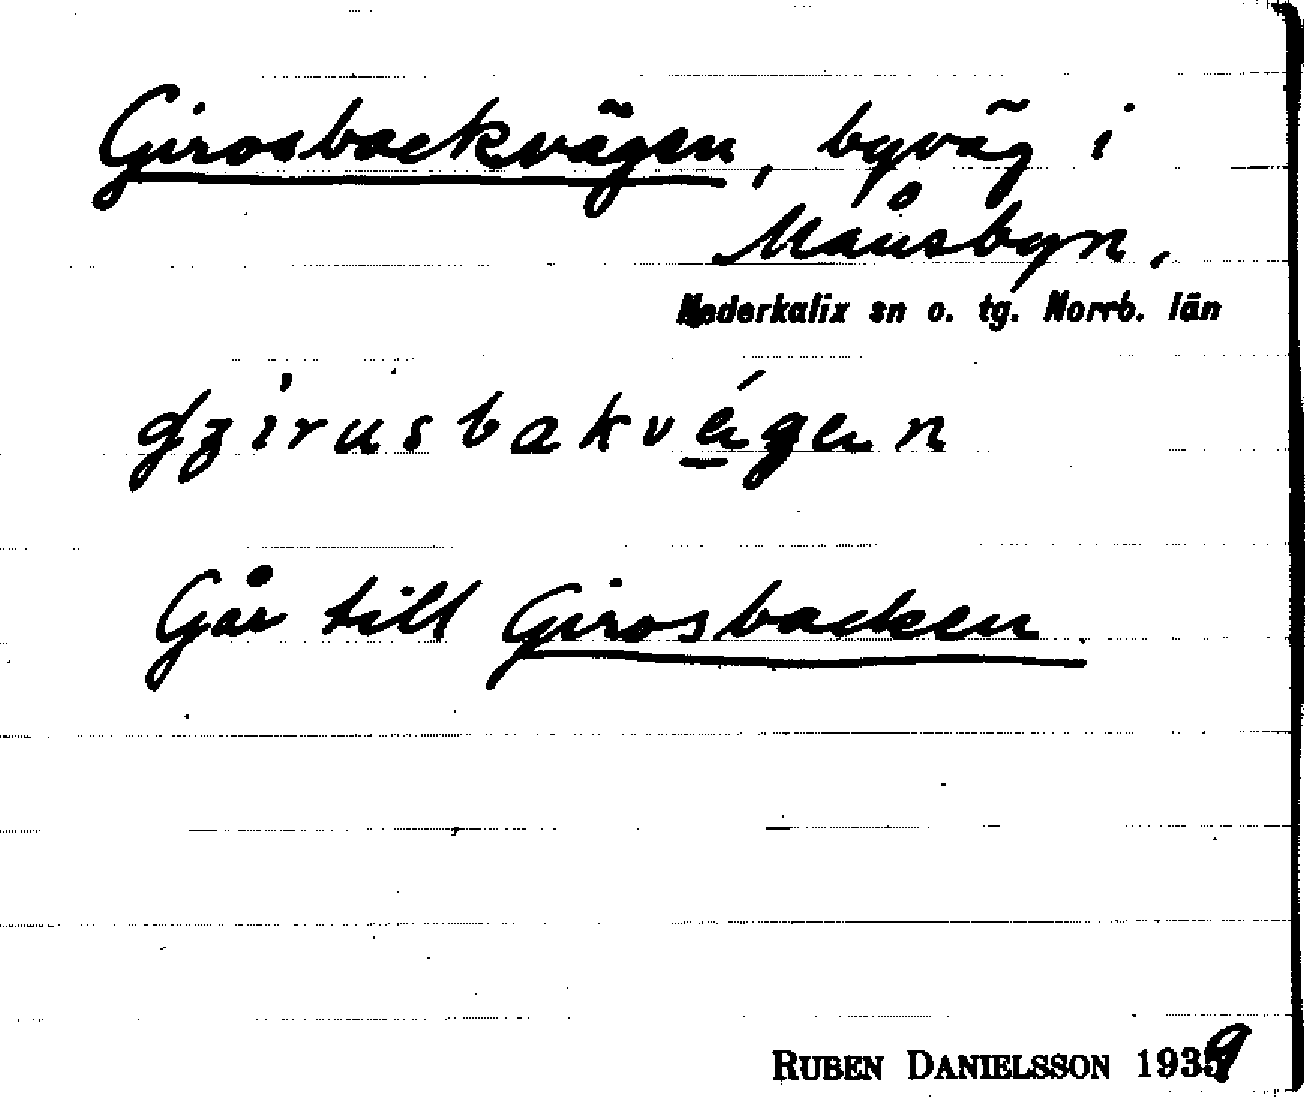 Girosbackvägen, byväg i
Månsbyn.
Nederkalix sn o. tg. Norrb. län
Går till Girosbacken.
RUBEN DANIELSSON 1939